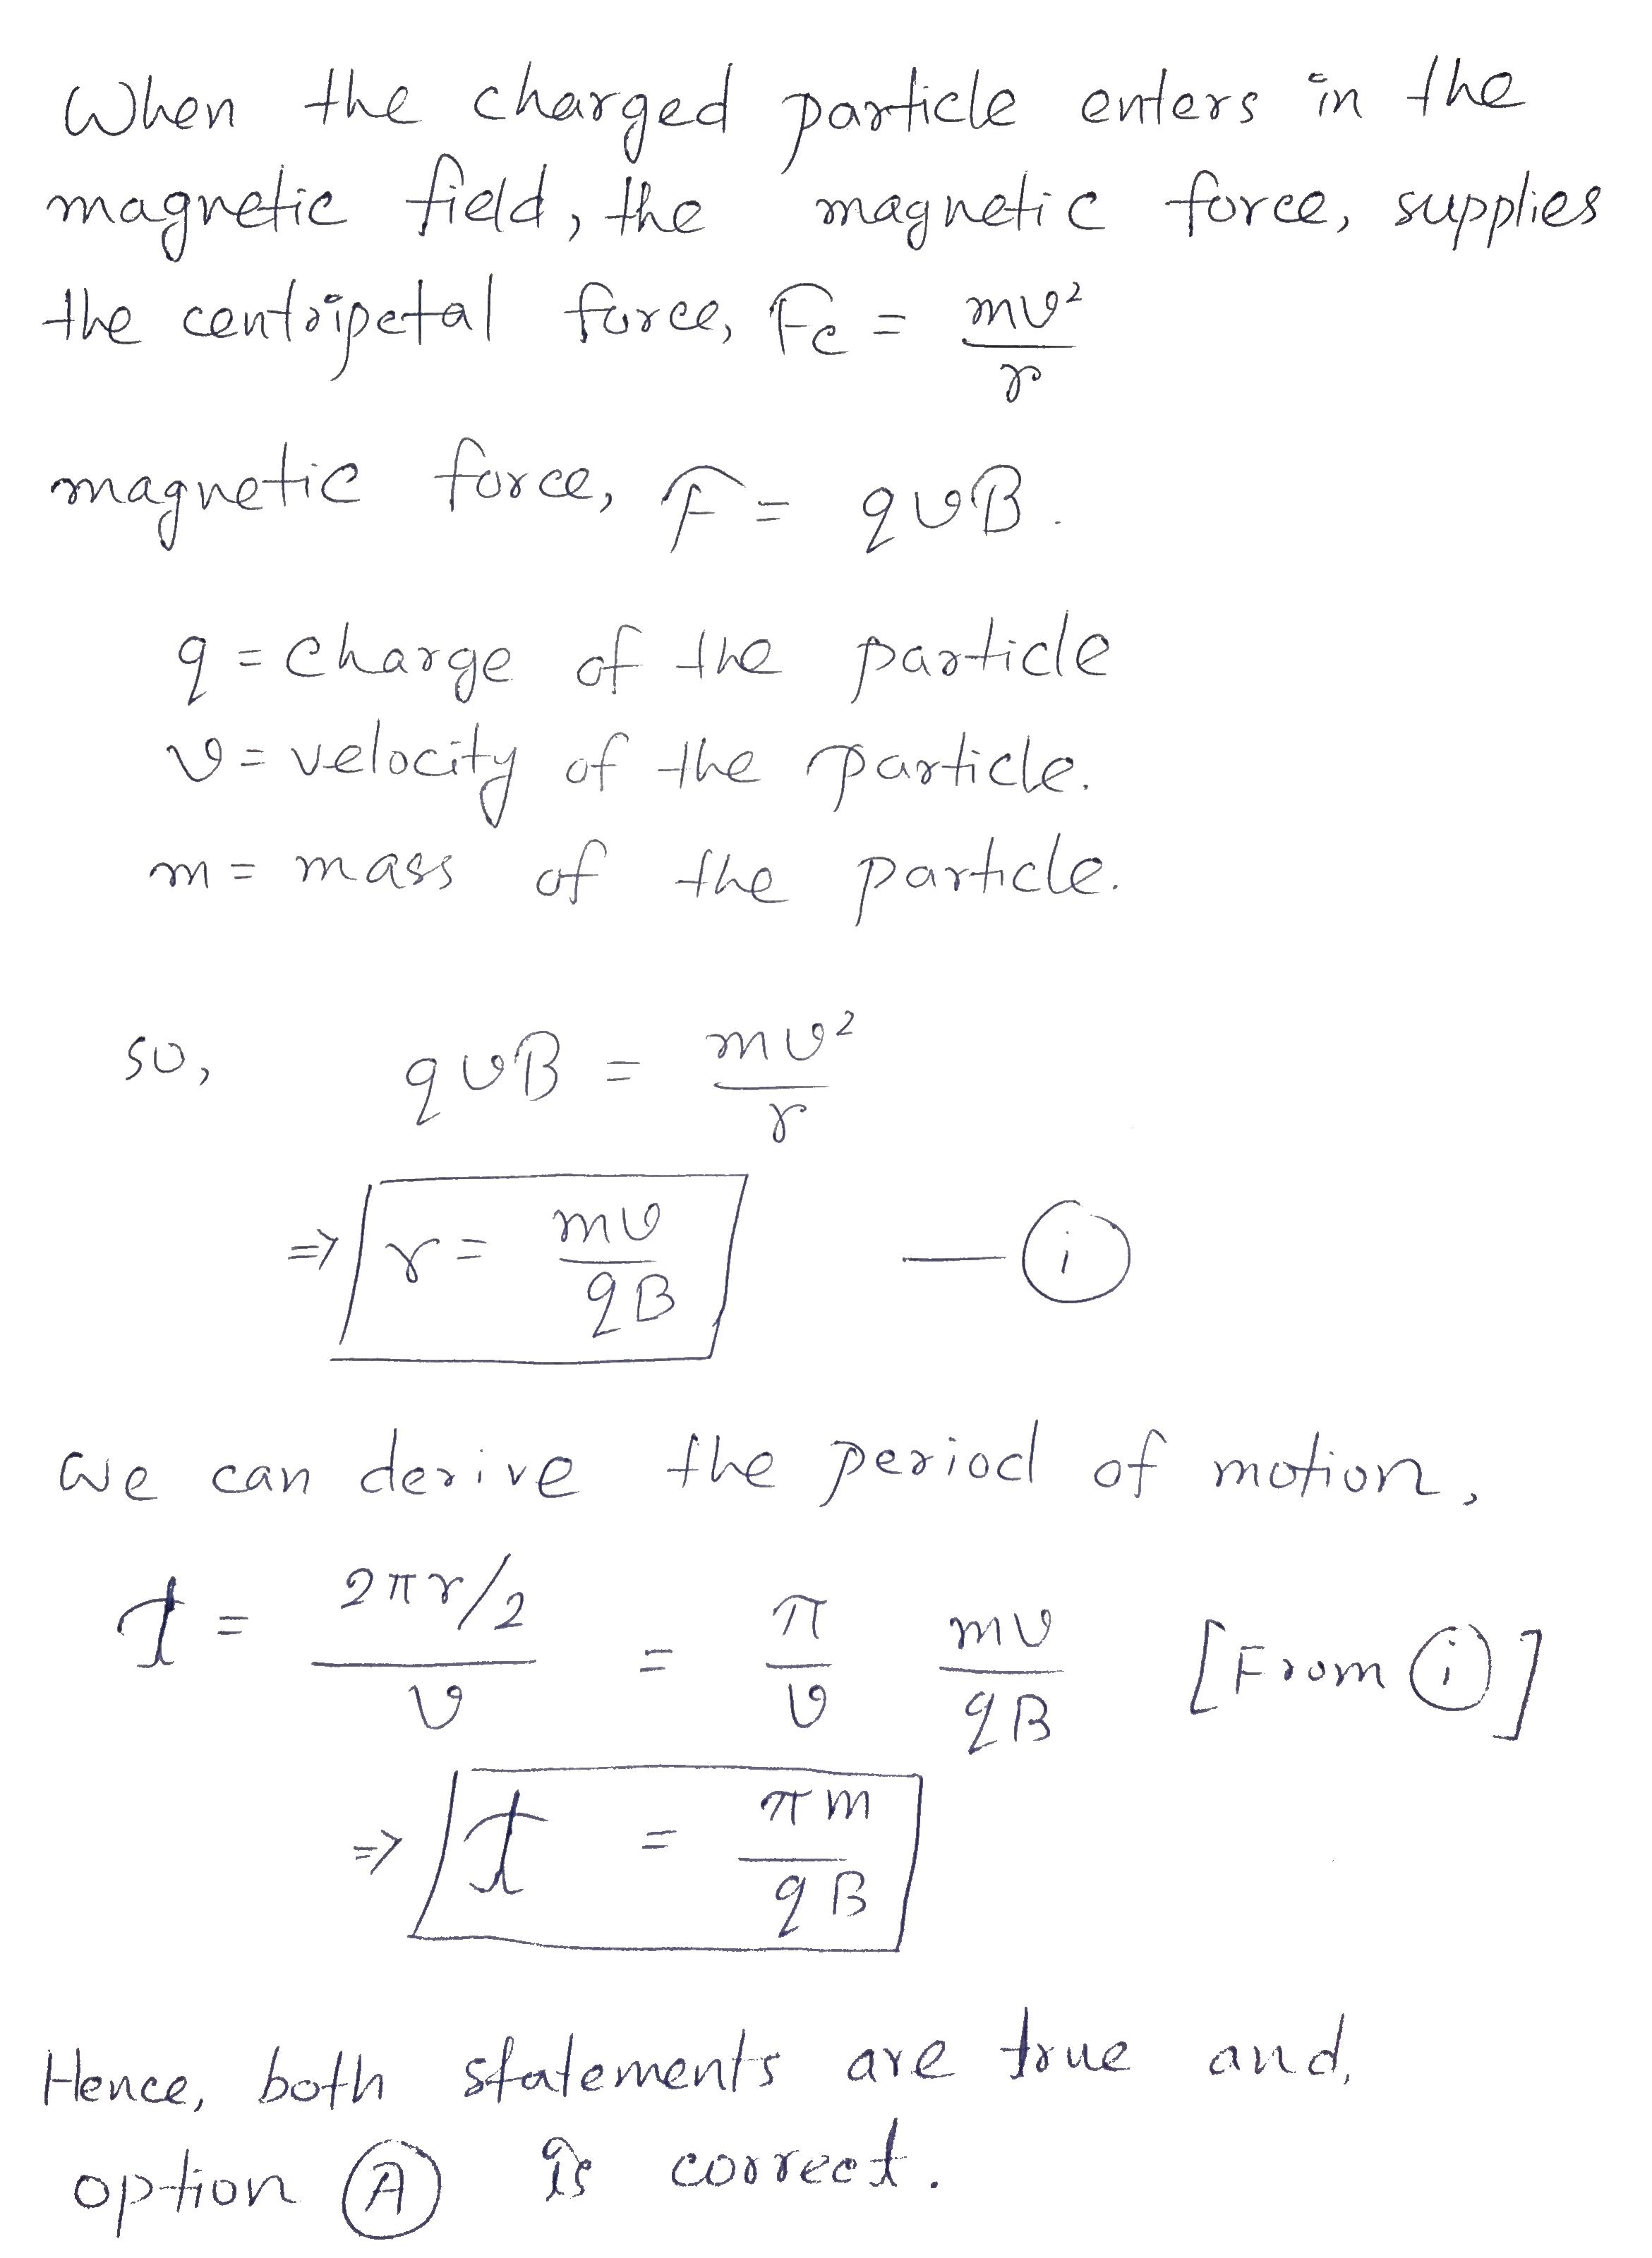 When the charged particle enters in the
magnetic field, the magnetic force, supplies
the centripetal force, Fc = mv²/r
magnetic force, F = qvB.
q = charge of the particle
v = velocity of the particle.
m = mass of the particle.
so, qvB = mv²/r
⇒ r = mv/qB — (i)
we can derive the period of motion,
t = (2πr/2)/v = π/v mv/qB [From (i)]
⇒ t = πm/qB
Hence, both statements are true and,
option (A) is correct.